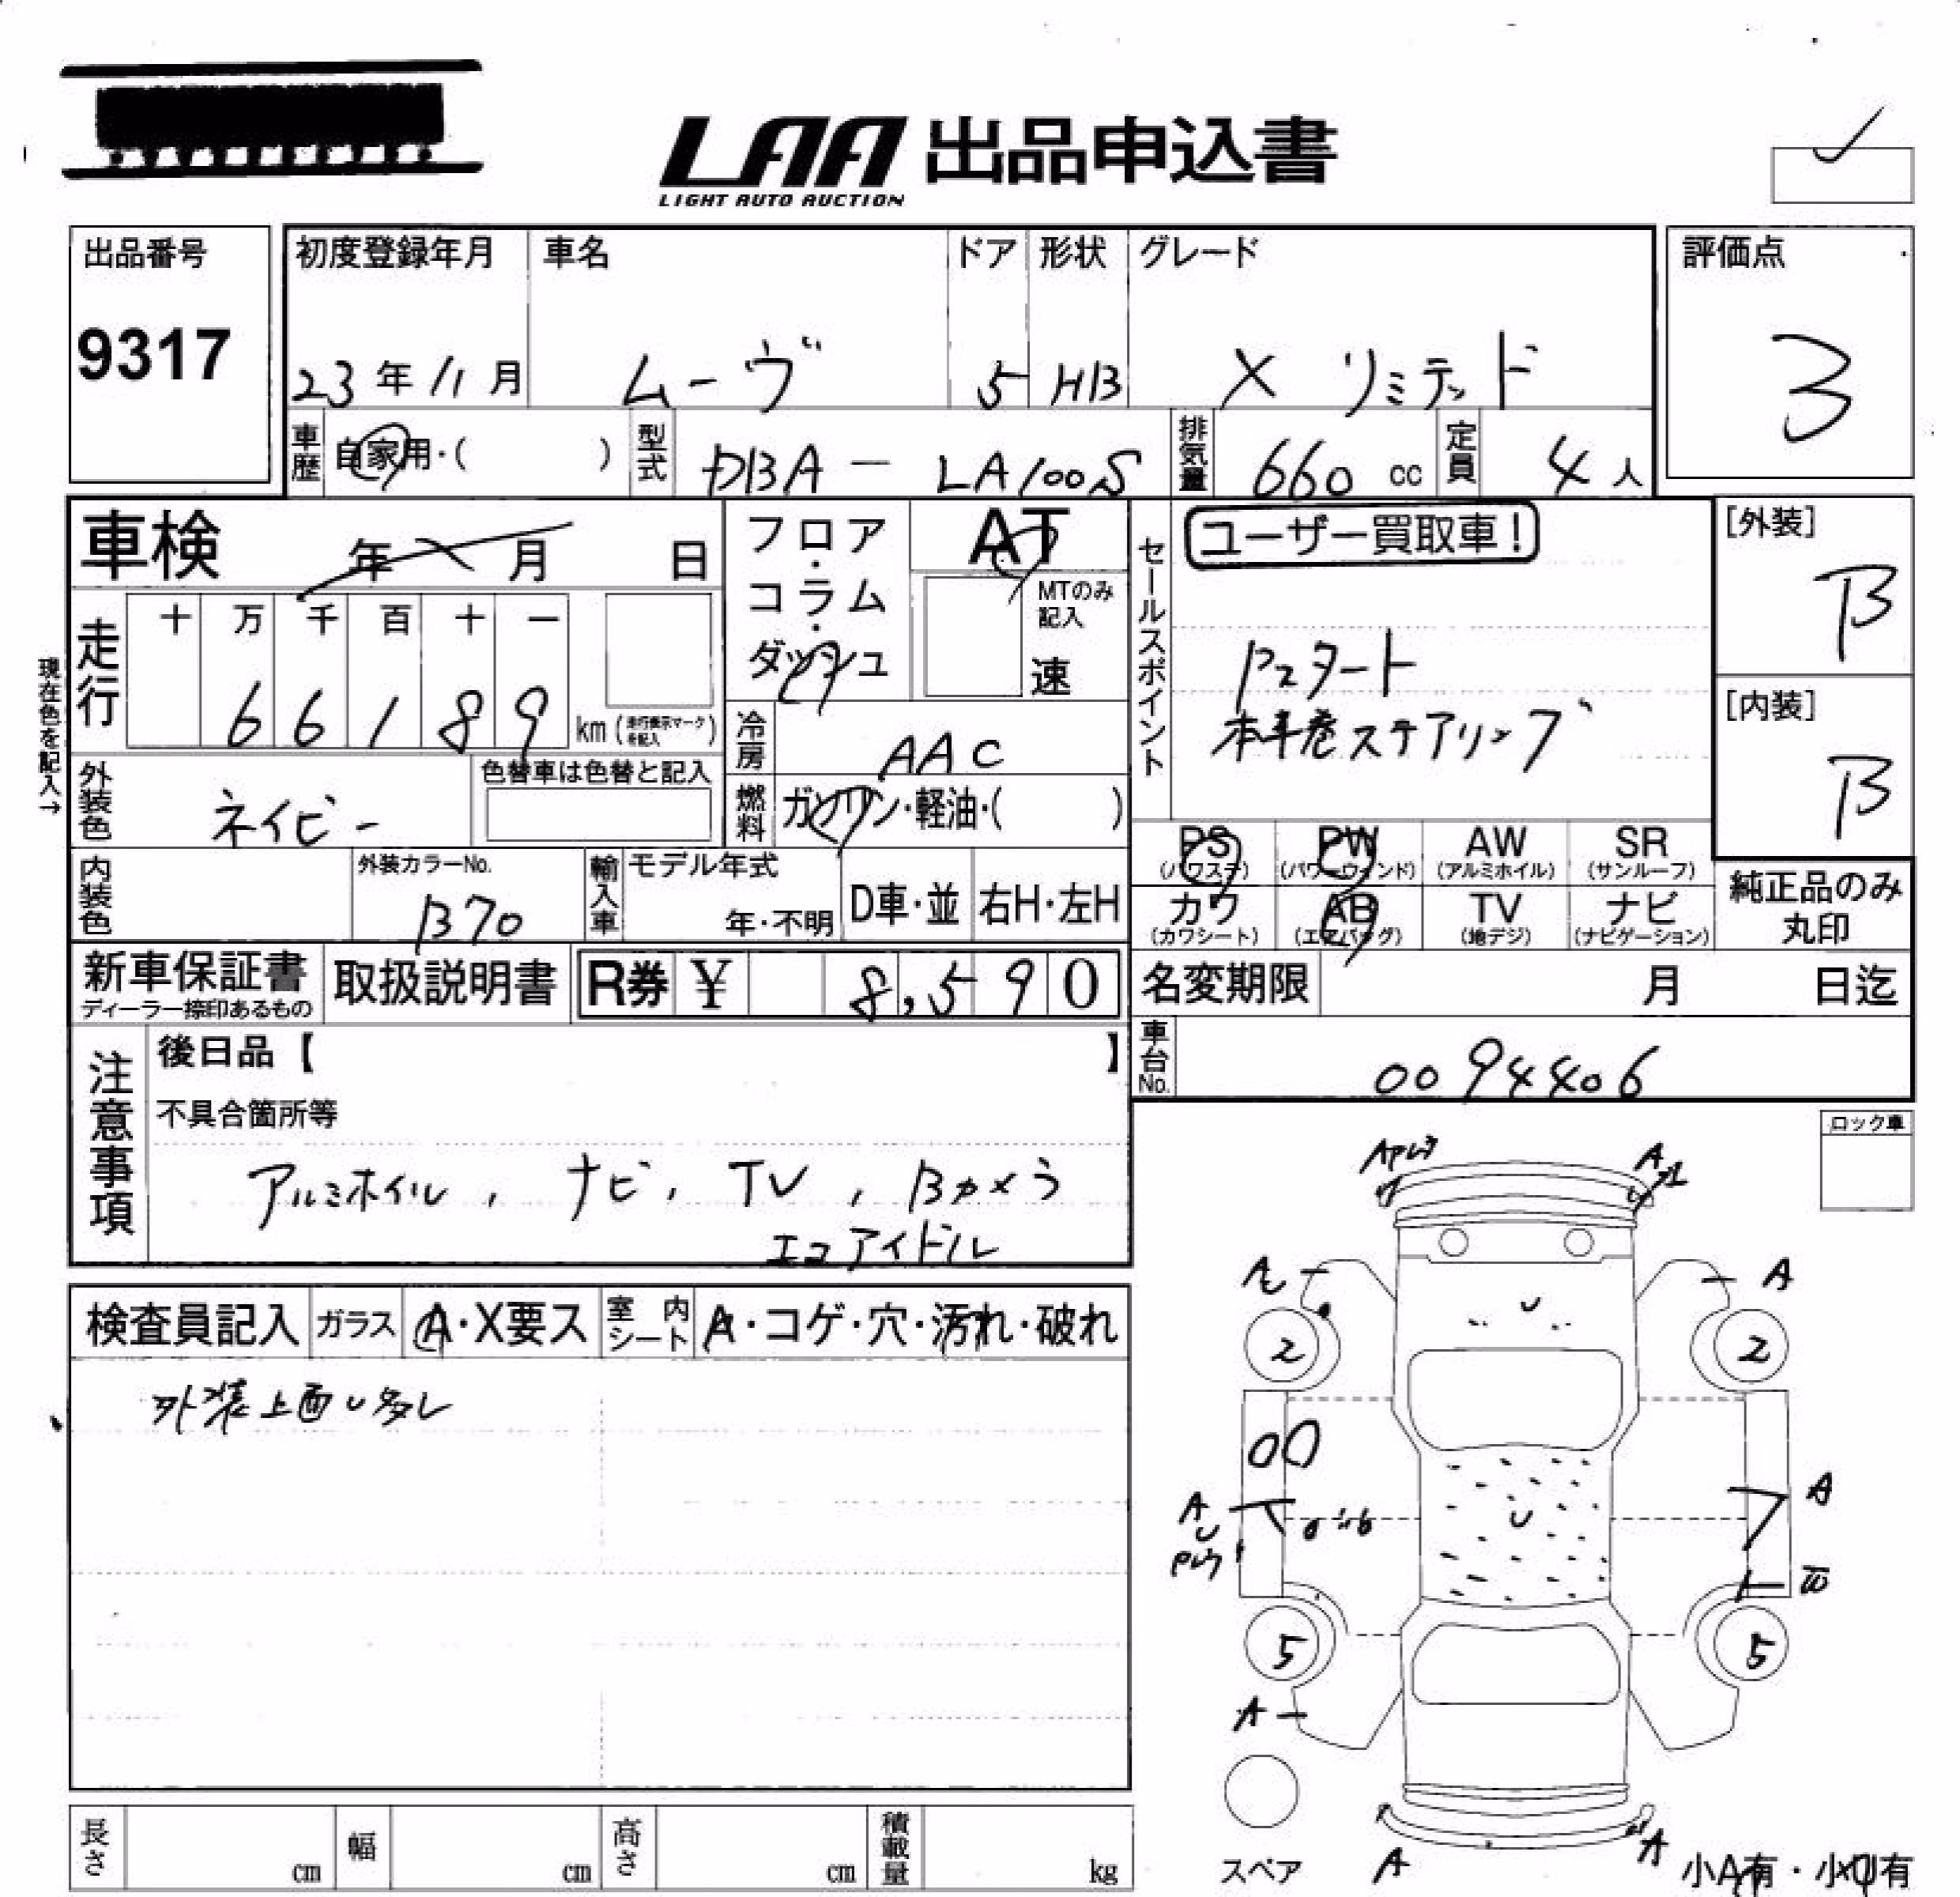 LAA 出品申込書
LIGHT AUTO AUCTION
出品番号
9317
初度登録年月
23年11月
車名
ムーヴ
ドア
5
形状
HB
グレード
X リミテッド
評価点
3
車歴
自家用・( )
型式
DBA - LA100S
排気量
660 cc
定員
4人
車検 年 月 日
フロア・コラム・ダッシュ
AT
MTのみ記入
速
現在色を記入→
走行
十 万 千 百 十 一
6 6 1 8 9 km
(走行表示マークを記入)
冷房
AAC
外装色
ネイビー
色替車は色替と記入
燃料
ガソリン・軽油・( )
内装色
外装カラーNo.
B70
輸入車
モデル年式
年・不明
D車・並
右H・左H
新車保証書
ディーラー捺印あるもの
取扱説明書
R券 ¥ 8,590
セールスポイント
ユーザー買取車!
Pスタート
本革巻ステアリング
[外装]
B
[内装]
B
PS
(パワステ)
PW
(パワーウィンド)
AW
(アルミホイル)
SR
(サンルーフ)
カワ
(カワシート)
AB
(エアバッグ)
TV
(地デジ)
ナビ
(ナビゲーション)
純正品のみ
丸印
名変期限 月 日迄
車台No.
0094406
注意事項
後日品【 】
不具合箇所等
アルミホイル, ナビ, TV, Bカメラ
エコアイドル
ロック車
検査員記入
ガラス
A・X要ス
室内シート
A・コゲ・穴・汚れ・破れ
外装上面U多し
A
A
A
2
2
A
U
A
5
5
A
スペア
A
A
小A有・小U有
長さ cm
幅 cm
高さ cm
積載量 kg